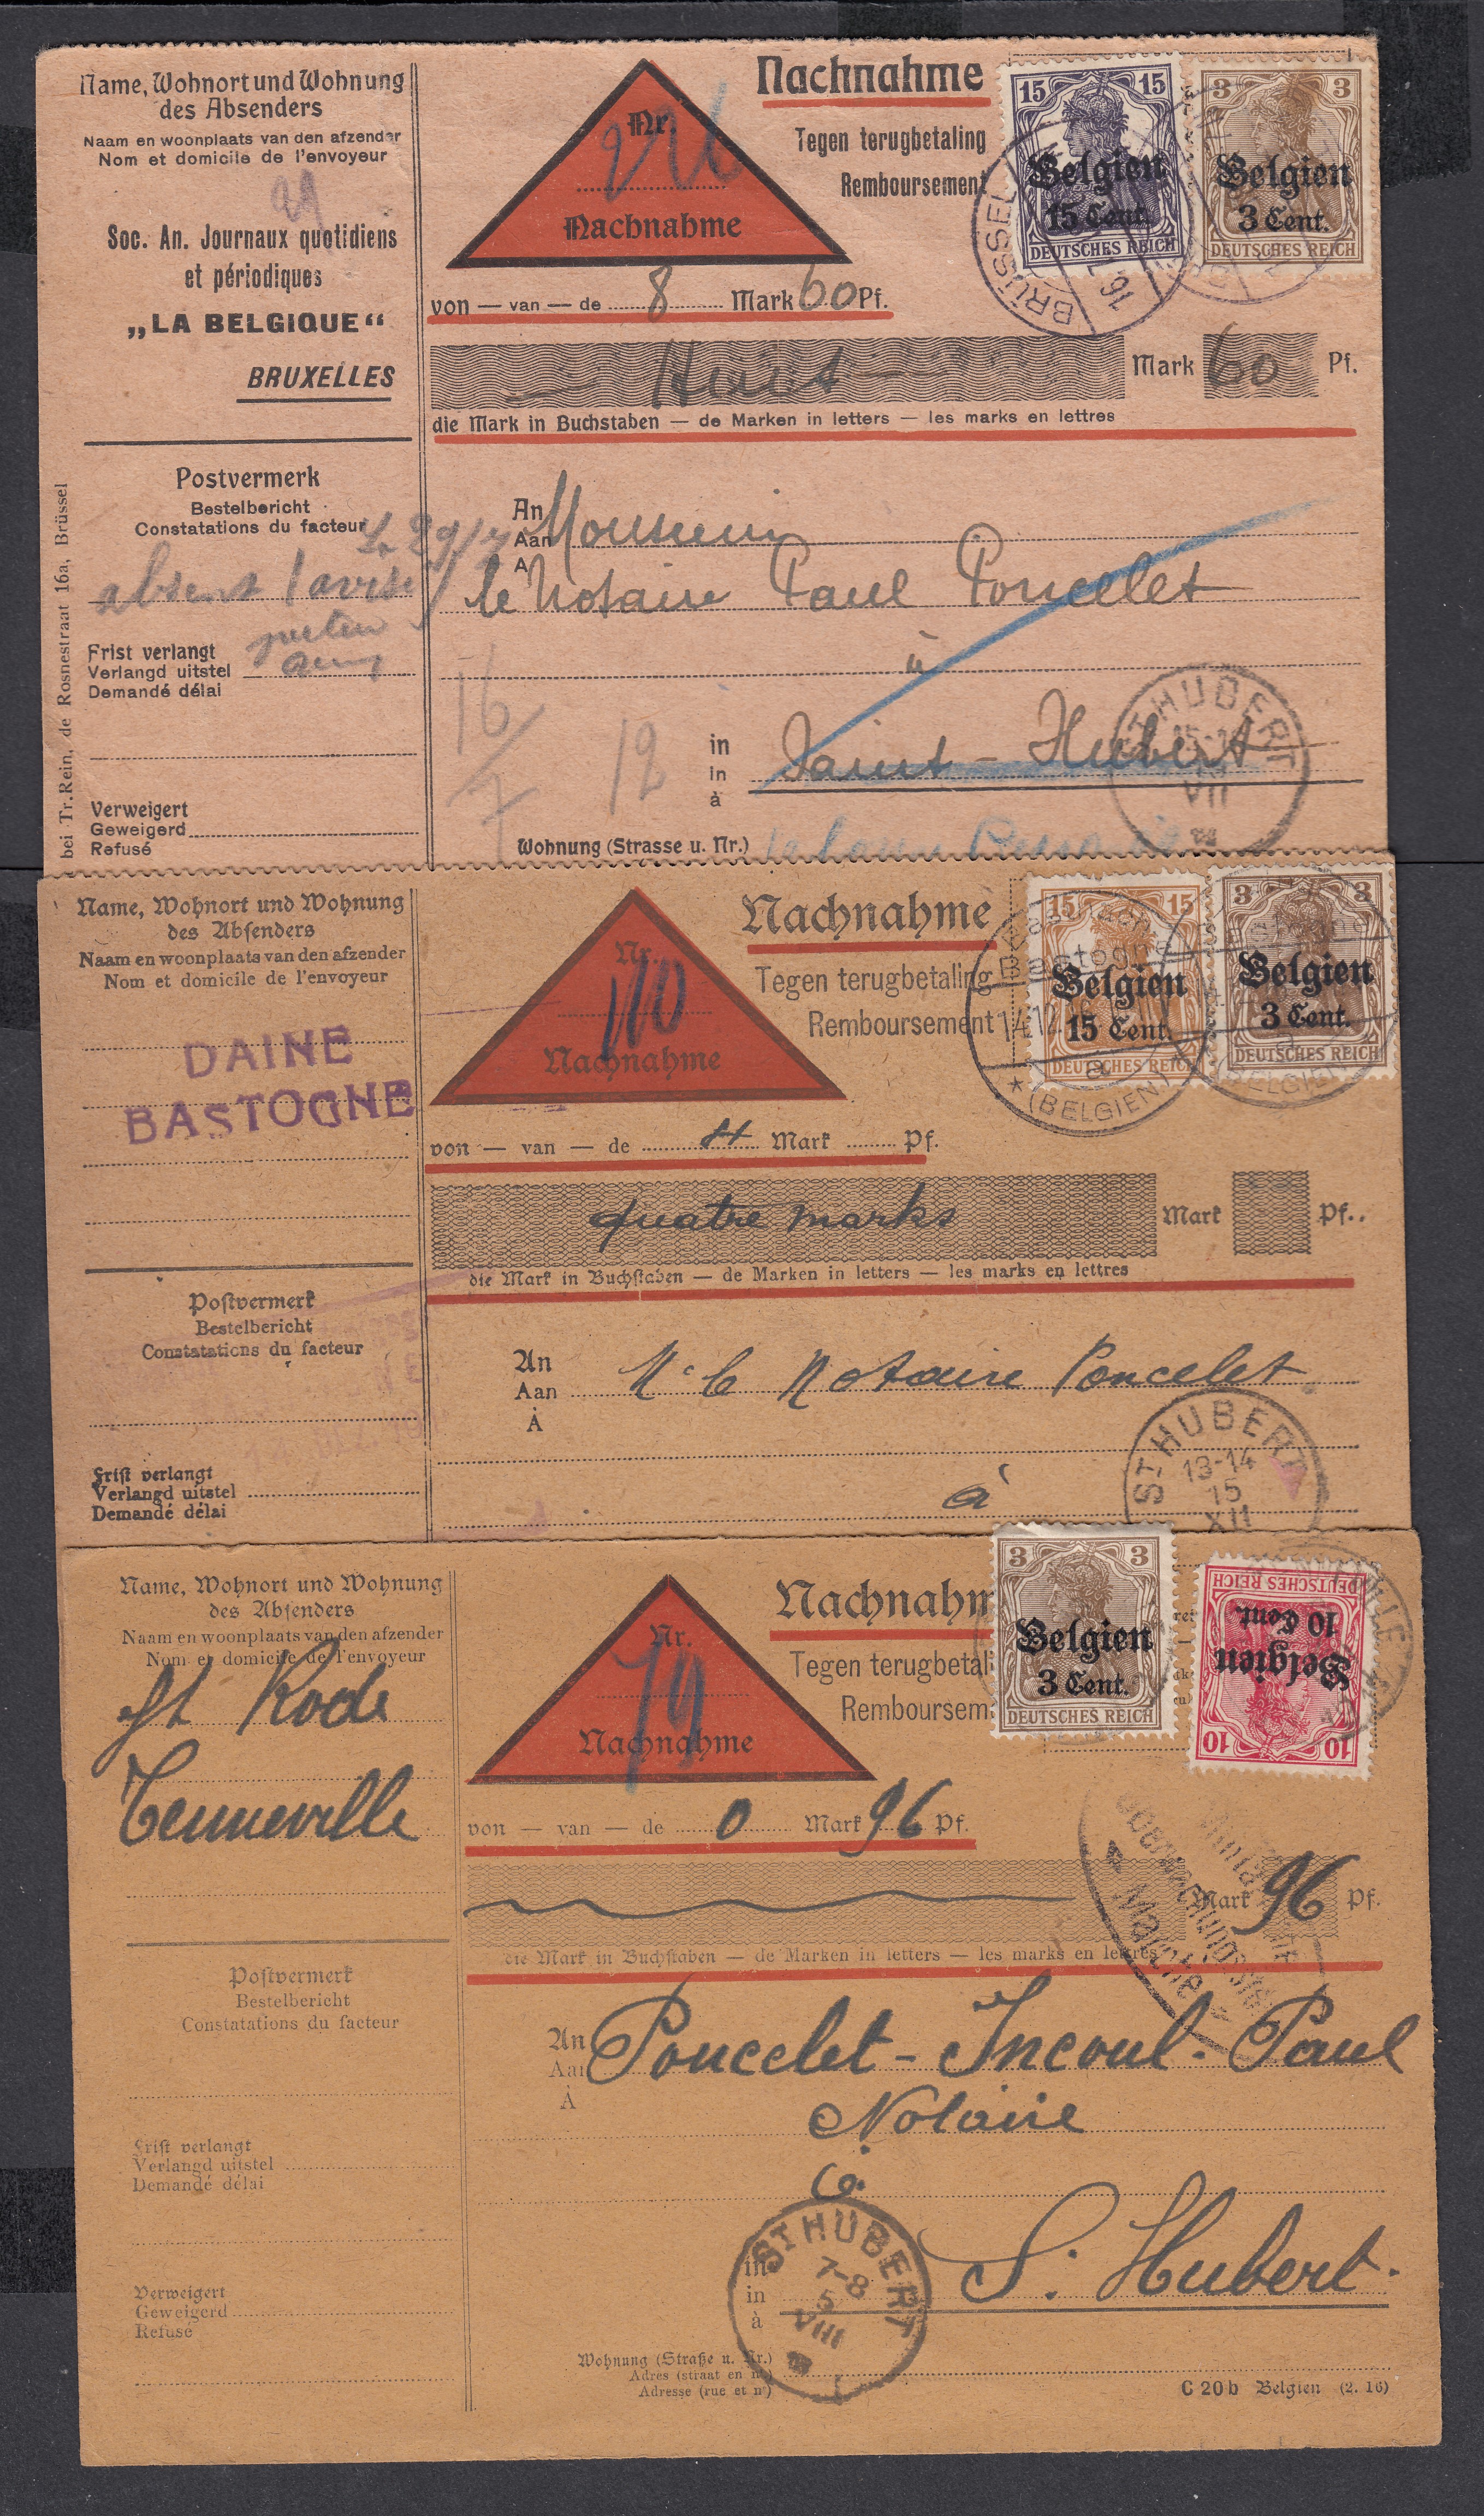 Name, Wohnort und Wohnung
des Absenders
Naam en woonplaats van den afzender
Nom et domicile de l'envoyeur
Soc. An. Journaux quotidiens
et périodiques
„LA BELGIQUE“
BRUXELLES
Postvermerk
Bestelbericht
Constatations du facteur
absent
Frist verlangt
Verlangd uitstel
Demandé délai
Verweigert
Geweigerd
Refusé
bei Tr. Rein, de Rosnestraat 16a, Brüssel
Nr.
Nachnahme
Nachnahme
Tegen terugbetaling
Remboursement
15 15
Belgien
15 Cent.
DEUTSCHES REICH
3 3
Belgien
3 Cent.
DEUTSCHES REICH
BRÜSSEL
von — van — de 8 Mark 60 Pf.
Huit Mark 60 Pf.
die Mark in Buchstaben — de Marken in letters — les marks en lettres
An
Aan
A
Monsieur
le Notaire Paul Poncelet
à
16/7
12
in
in
à
Saint-Hubert
ST HUBERT
VII
Wohnung (Strasse u. Nr.)
Name, Wohnort und Wohnung
des Absenders
Naam en woonplaats van den afzender
Nom et domicile de l'envoyeur
DAINE
BASTOGNE
Postvermerk
Bestelbericht
Constatations du facteur
Frist verlangt
Verlangd uitstel
Demandé délai
Nr.
110
Nachnahme
Nachnahme
Tegen terugbetaling
Remboursement
15 15
Belgien
15 Cent.
DEUTSCHES REICH
3 3
Belgien
3 Cent.
DEUTSCHES REICH
Bastogne
(BELGIEN)
von — van — de 4 Mark Pf.
quatre marks Mark Pf.
die Mark in Buchstaben — de Marken in letters — les marks en lettres
An
Aan
À
Mr le Notaire Poncelet
à
ST HUBERT
13-14
15
XII
Name, Wohnort und Wohnung
des Absenders
Naam en woonplaats van den afzender
Nom et domicile de l'envoyeur
Rode
Tenneville
Postvermerk
Bestelbericht
Constatations du facteur
Frist verlangt
Verlangd uitstel
Demandé délai
Verweigert
Geweigerd
Refusé
Nr.
79
Nachnahme
Nachnahm
Tegen terugbetali
Remboursem
3 3
Belgien
3 Cent.
DEUTSCHES REICH
10 10
Belgien
10 Cent.
DEUTSCHES REICH
von — van — de 0 Mark 96 Pf.
Mark 96 Pf.
die Mark in Buchstaben — de Marken in letters — les marks en lettres
An
Aan
À
Poncelet-Incoul. Paul
Notaire
à
in
in
à
S. Hubert.
ST HUBERT
7-8
5
VIII
Wohnung (Straße u. Nr.)
Adres (straat en nr)
Adresse (rue et no)
C 20 b Belgien (2. 16)